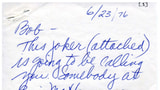 6/23/76
Bob -
This joker (attached)
is going to be calling
you. Somebody at